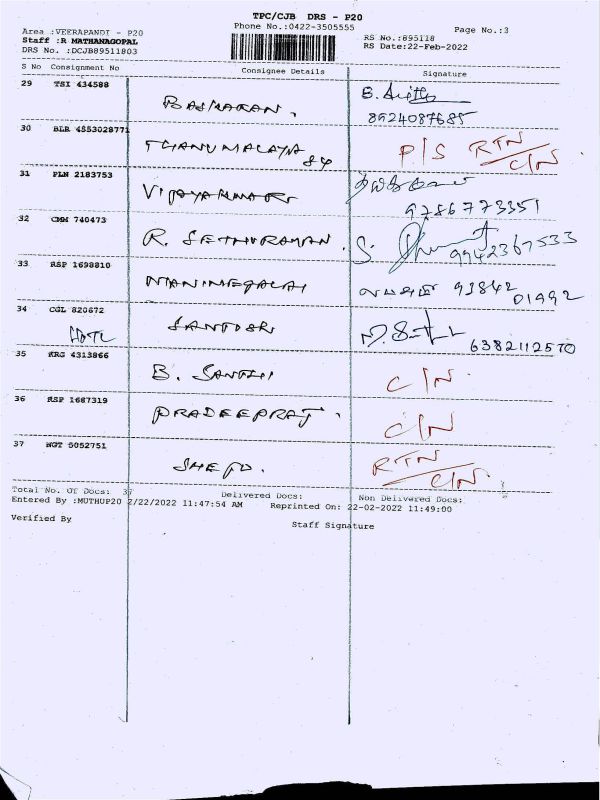 TPC/CJB DRS - P20
Area :VEERAPANDI - P20 Phone No.:0422-3505555 Page No.:3
Staff :R MATHANAGOPAL RS No.:895118
DRS No. :DCJB89511803 RS Date:22-Feb-2022
S No Consignment No Consignee Details Signature
29 TSI 434588 BASKARAN.
8924087685
30 BLR 4853028771 THANUMALAYA P/S RTN
C/N
31 PLN 2183753 VIJAYAKUMAR
9786773351
32 CMM 740473 R. SETHURAMAN. S.
9942367533
33 RSP 1698810 MANIMEGALAI 93842
01992
34 CGL 820672 SANTOSH
6382112570
35 KRG 4313866 B. SANTHI C/N.
36 RSP 1687319 PRADEEPRAJ. C/N
37 NGT 5052751 RTN
C/N.
Total No. Of Docs: 37 Delivered Docs: Non Delivered Docs:
Entered By :MUTHUP20 2/22/2022 11:47:54 AM Reprinted On: 22-02-2022 11:49:00
Verified By Staff Signature